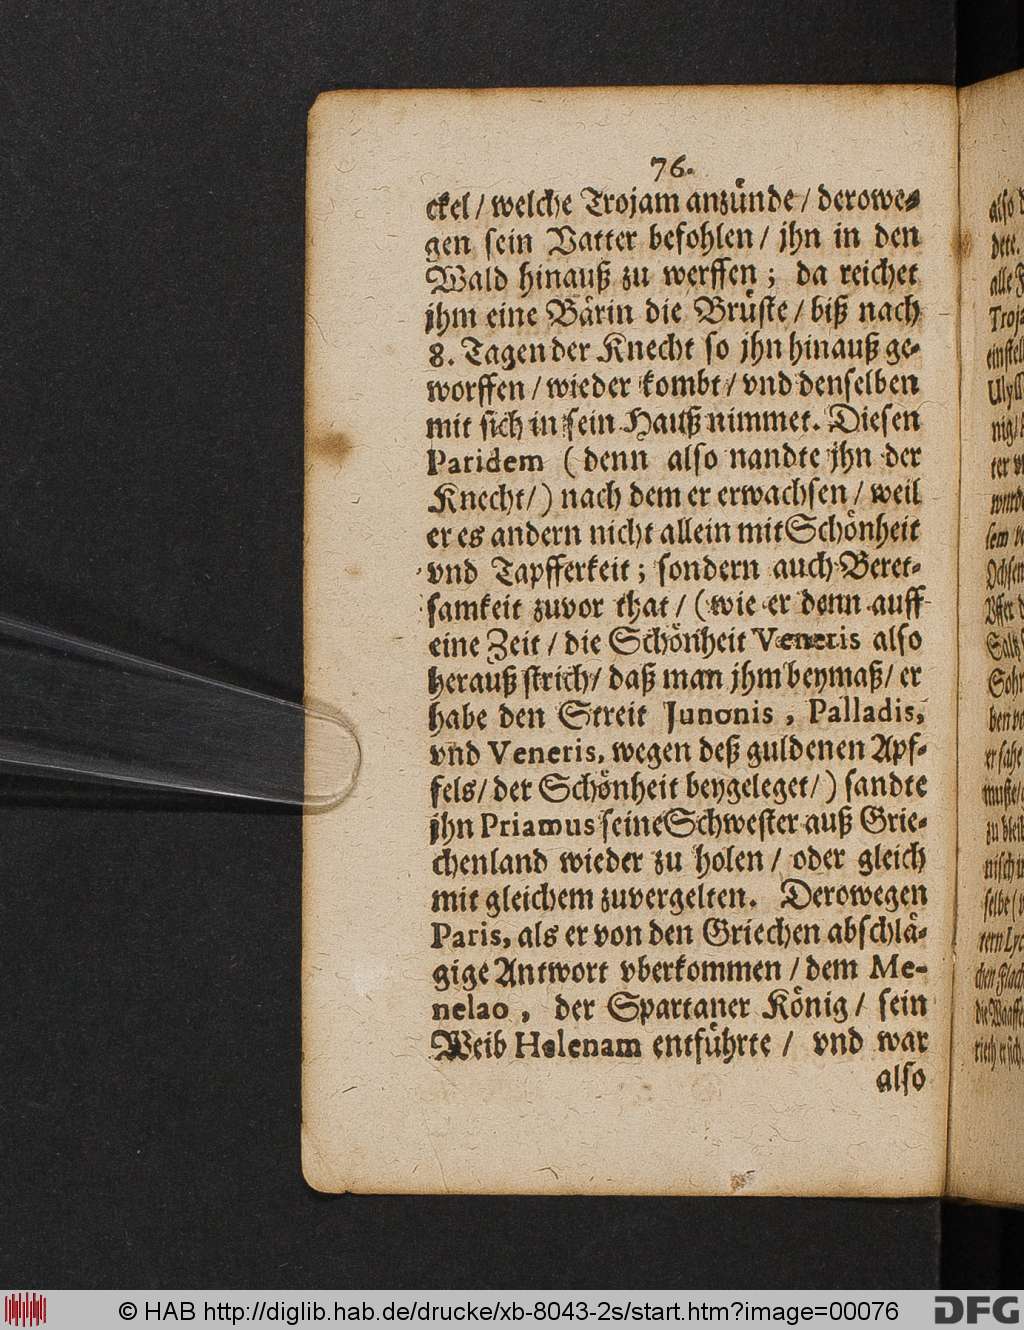 76.
ckel / welche Trojam anzünde / derowe-
gen sein Vatter befohlen / jhn in den
Wald hinauß zu werffen ; da reichet
jhm eine Bärin die Brüste / biß nach
8. Tagen der Knecht so jhn hinauß ge-
worffen / wieder kombt / vnd denselben
mit sich in sein Hauß nimmet. Diesen
Paridem ( denn also nandte jhn der
Knecht / ) nach dem er erwachsen / weil
er es andern nicht allein mit Schönheit
vnd Tapfferkeit ; sondern auch Beret-
samkeit zuvor that / ( wie er denn auff
eine Zeit / die Schönheit Veneris also
herauß strich / daß man jhm beymaß / er
habe den Streit Junonis , Palladis,
vnd Veneris, wegen deß guldenen Apf-
fels / der Schönheit beygeleget / ) sandte
jhn Priamus seine Schwester auß Grie-
chenland wieder zu holen / oder gleich
mit gleichem zuvergelten. Derowegen
Paris, als er von den Griechen abschlä-
gige Antwort vberkommen / dem Me-
nelao , der Spartaner König / sein
Weib Helenam entführte / vnd war
also
© HAB http://diglib.hab.de/drucke/xb-8043-2s/start.htm?image=00076
DFG